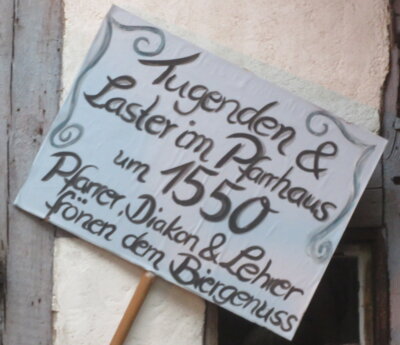 Tugenden &
Laster im Pfarrhaus
um 1550
Pfarrer, Diakon & Lehrer
frönen dem Biergenuss